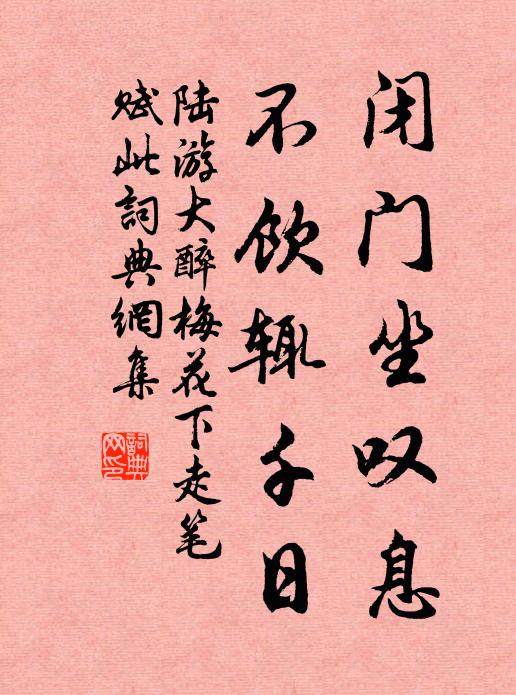 闭门坐叹息
不饮辄千日
陆游大醉梅花下走笔
赋此詞典網集
詞典
网印